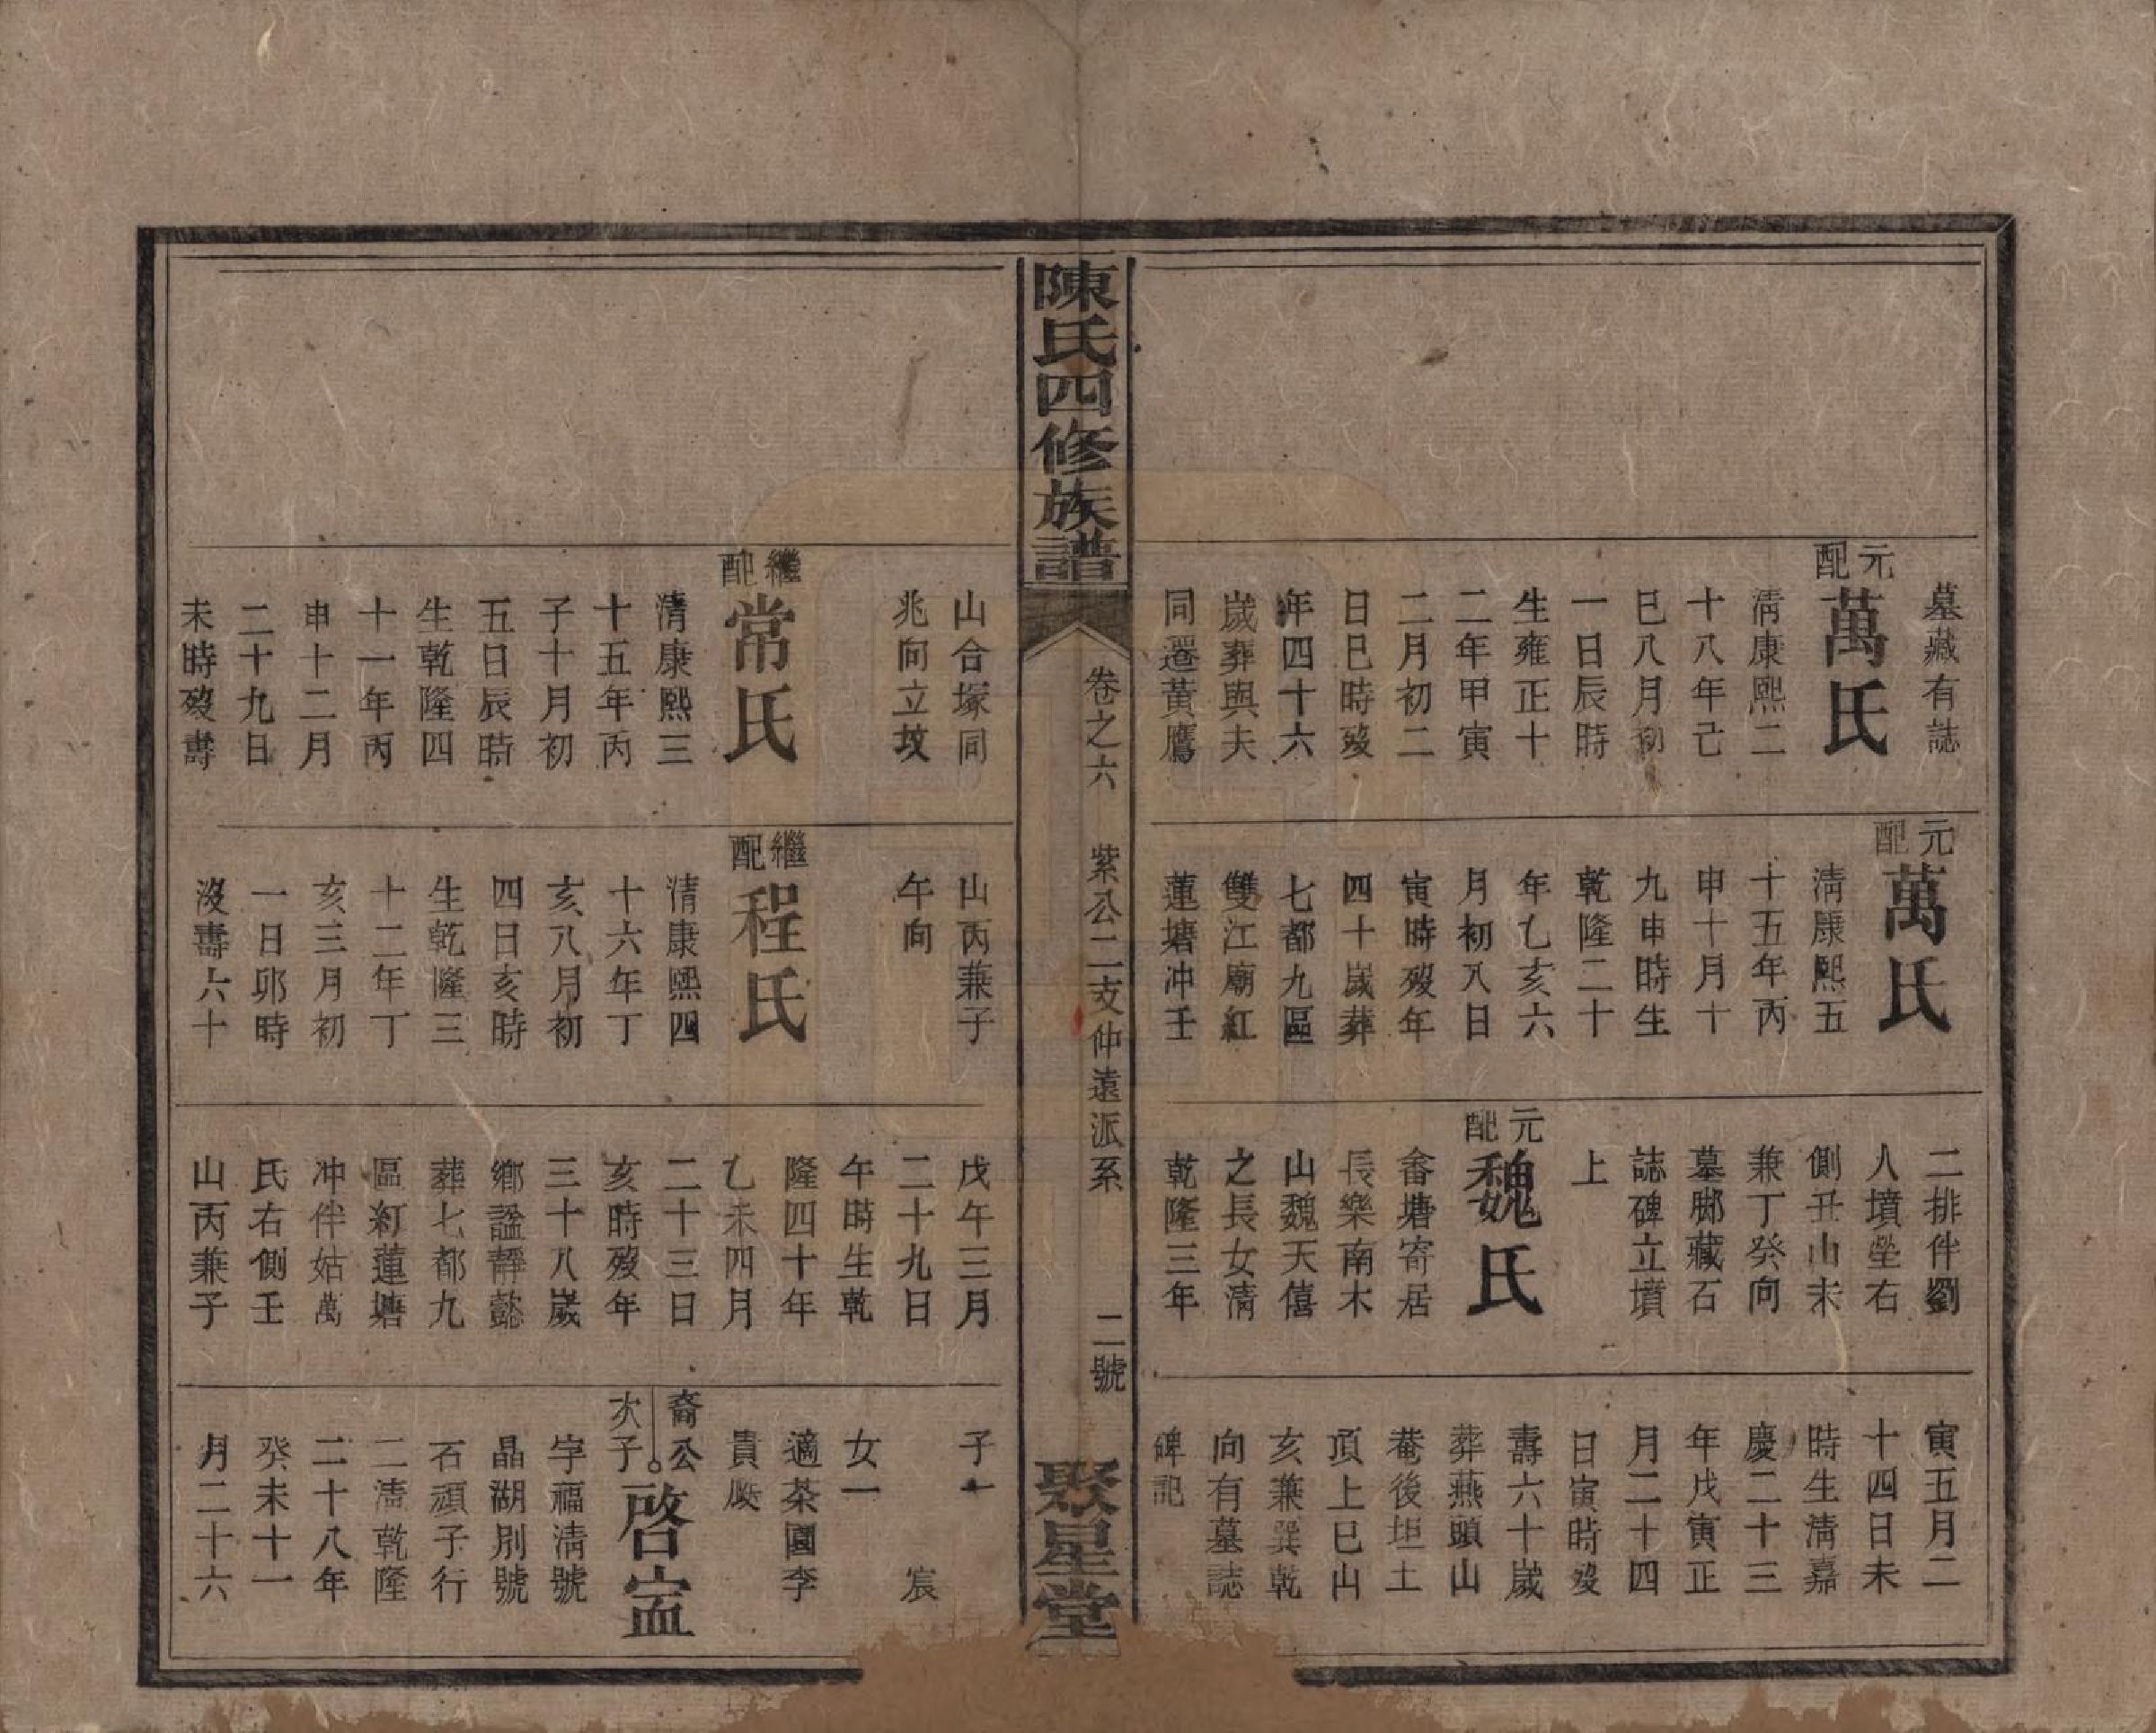 墓藏有誌
元配
萬氏
清康熙二
十八年己
巳八月初
一日辰時
生雍正十
二年甲寅
二月初二
日巳時歿
年四十六
歲葬與夫
同遷黃鷹
元配
萬氏
清康熙五
十五年丙
申十月十
九申時生
乾隆二十
年乙亥六
月初八日
寅時歿年
四十歲葬
七都九區
雙江廟紅
蓮塘冲壬
二排伴劉
人墳塋右
側丑山未
兼丁癸向
墓郷藏石
誌碑立墳
上
元配
魏氏
畬塘寄居
長樂南木
山魏天僖
之長女清
乾隆三年
寅五月二
十四日未
時生清嘉
慶二十三
年戊寅正
月二十四
日寅時歿
壽六十歲
葬燕頭山
菴後坦土
頂上巳山
亥兼巽乾
向有墓誌
碑記
陳氏四修族譜
卷之六
紫公二支仲遠派系
二號
聚星堂
山合塚同
兆向立坟
繼配
常氏
清康熙三
十五年丙
子十月初
五日辰時
生乾隆四
十一年丙
申十二月
二十九日
未時歿壽
山丙兼子
午向
繼配
程氏
清康熙四
十六年丁
亥八月初
四日亥時
生乾隆三
十二年丁
亥三月初
一日卯時
沒壽六十
戊午三月
二十九日
午時生乾
隆四十年
乙未四月
二十三日
亥時歿年
三十八歲
鄉謚靜懿
葬七都九
區紅蓮塘
冲伴姑萬
氏右側壬
山丙兼子
子一
宸
女一
適茶園李
貴殿
裔公
次子
啓寍
字福清號
晶湖別號
石頑子行
二清乾隆
二十八年
癸未十一
月二十六